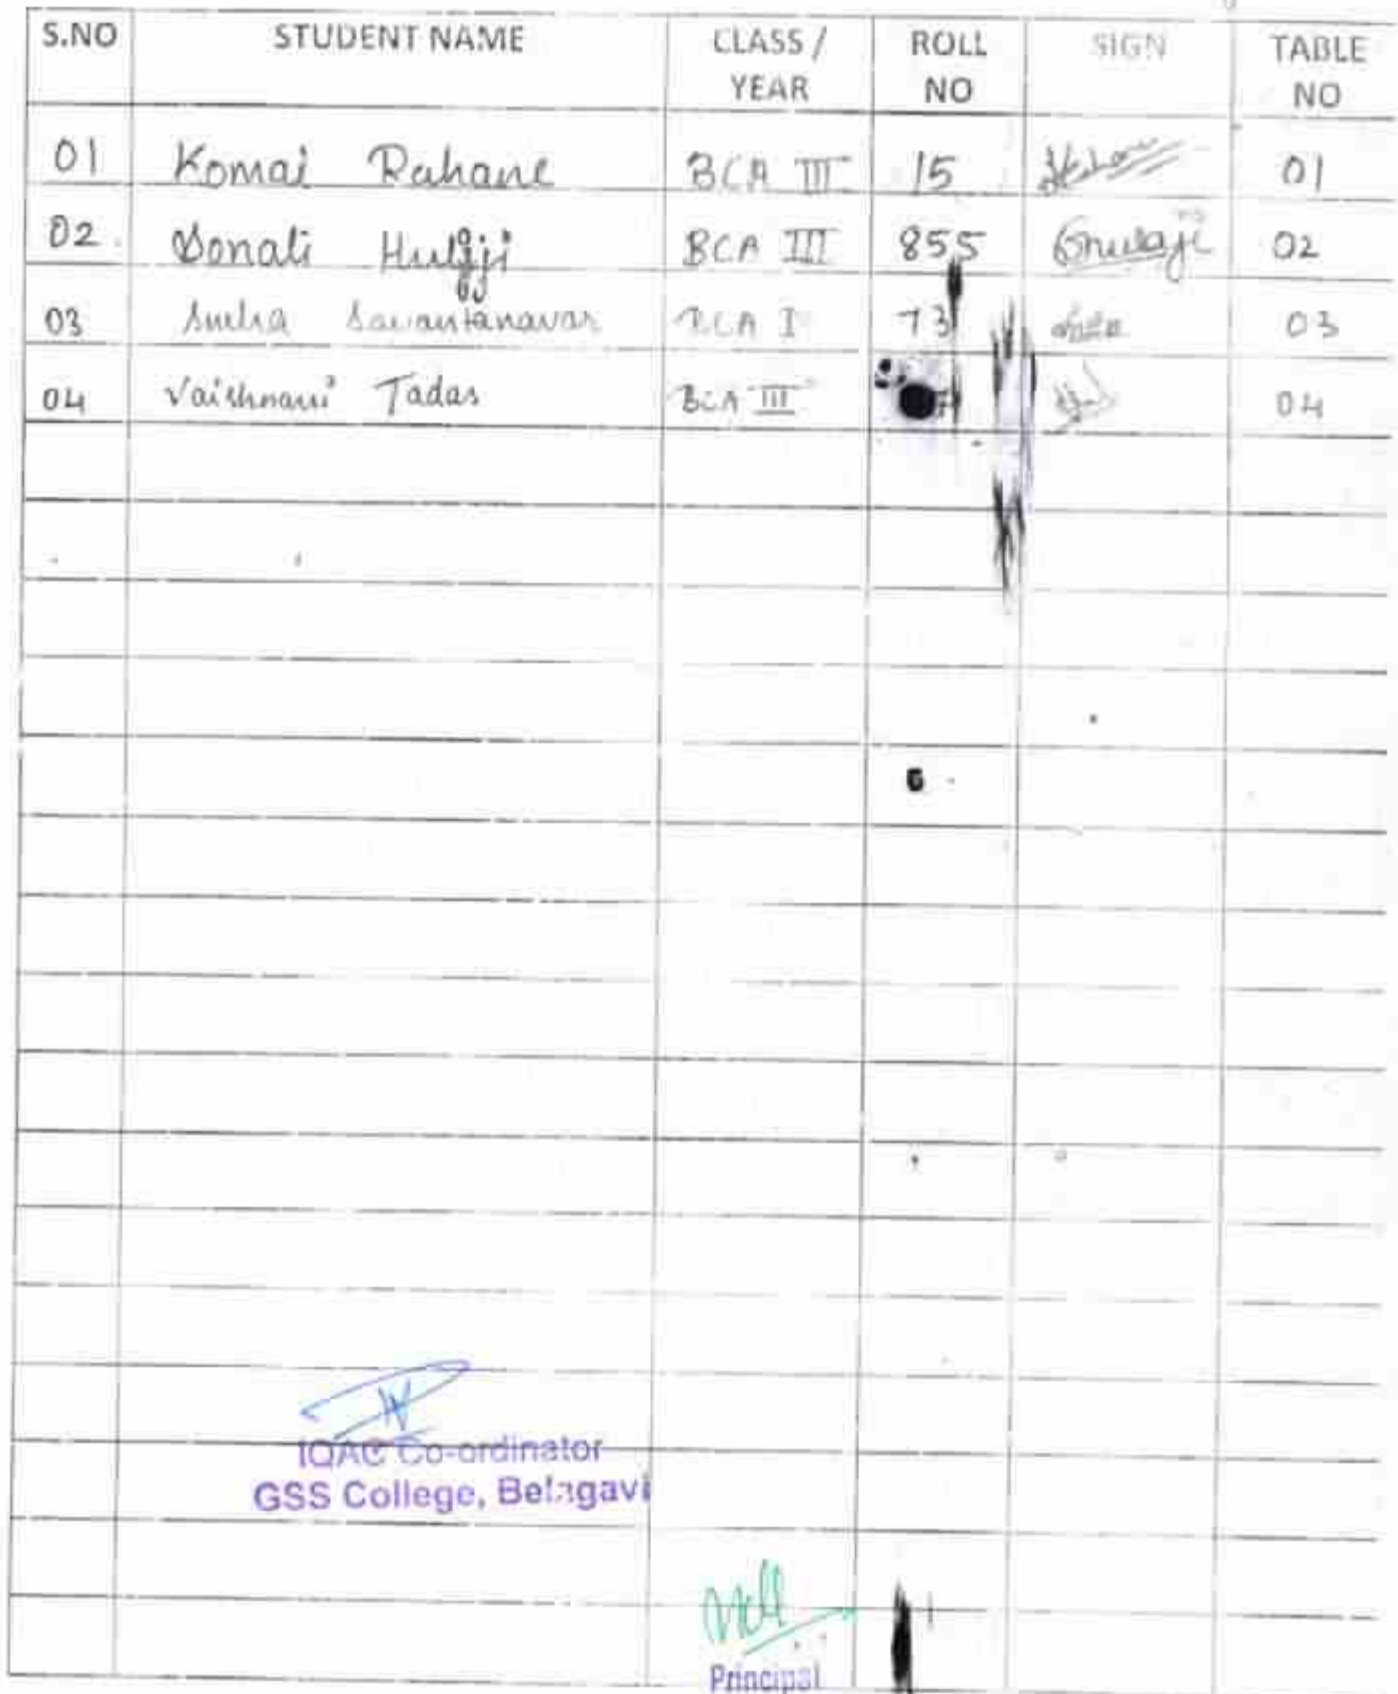 S.NO STUDENT NAME CLASS / YEAR ROLL NO SIGN TABLE NO
01 Komal Rahane BCA III 15 01
02 Sonali Hulaji BCA III 855 02
03 Savantanavar BCA I 73 03
04 Vaishnavi Tadas BCA III 04
IQAC Co-ordinator
GSS College, Belagavi
Principal